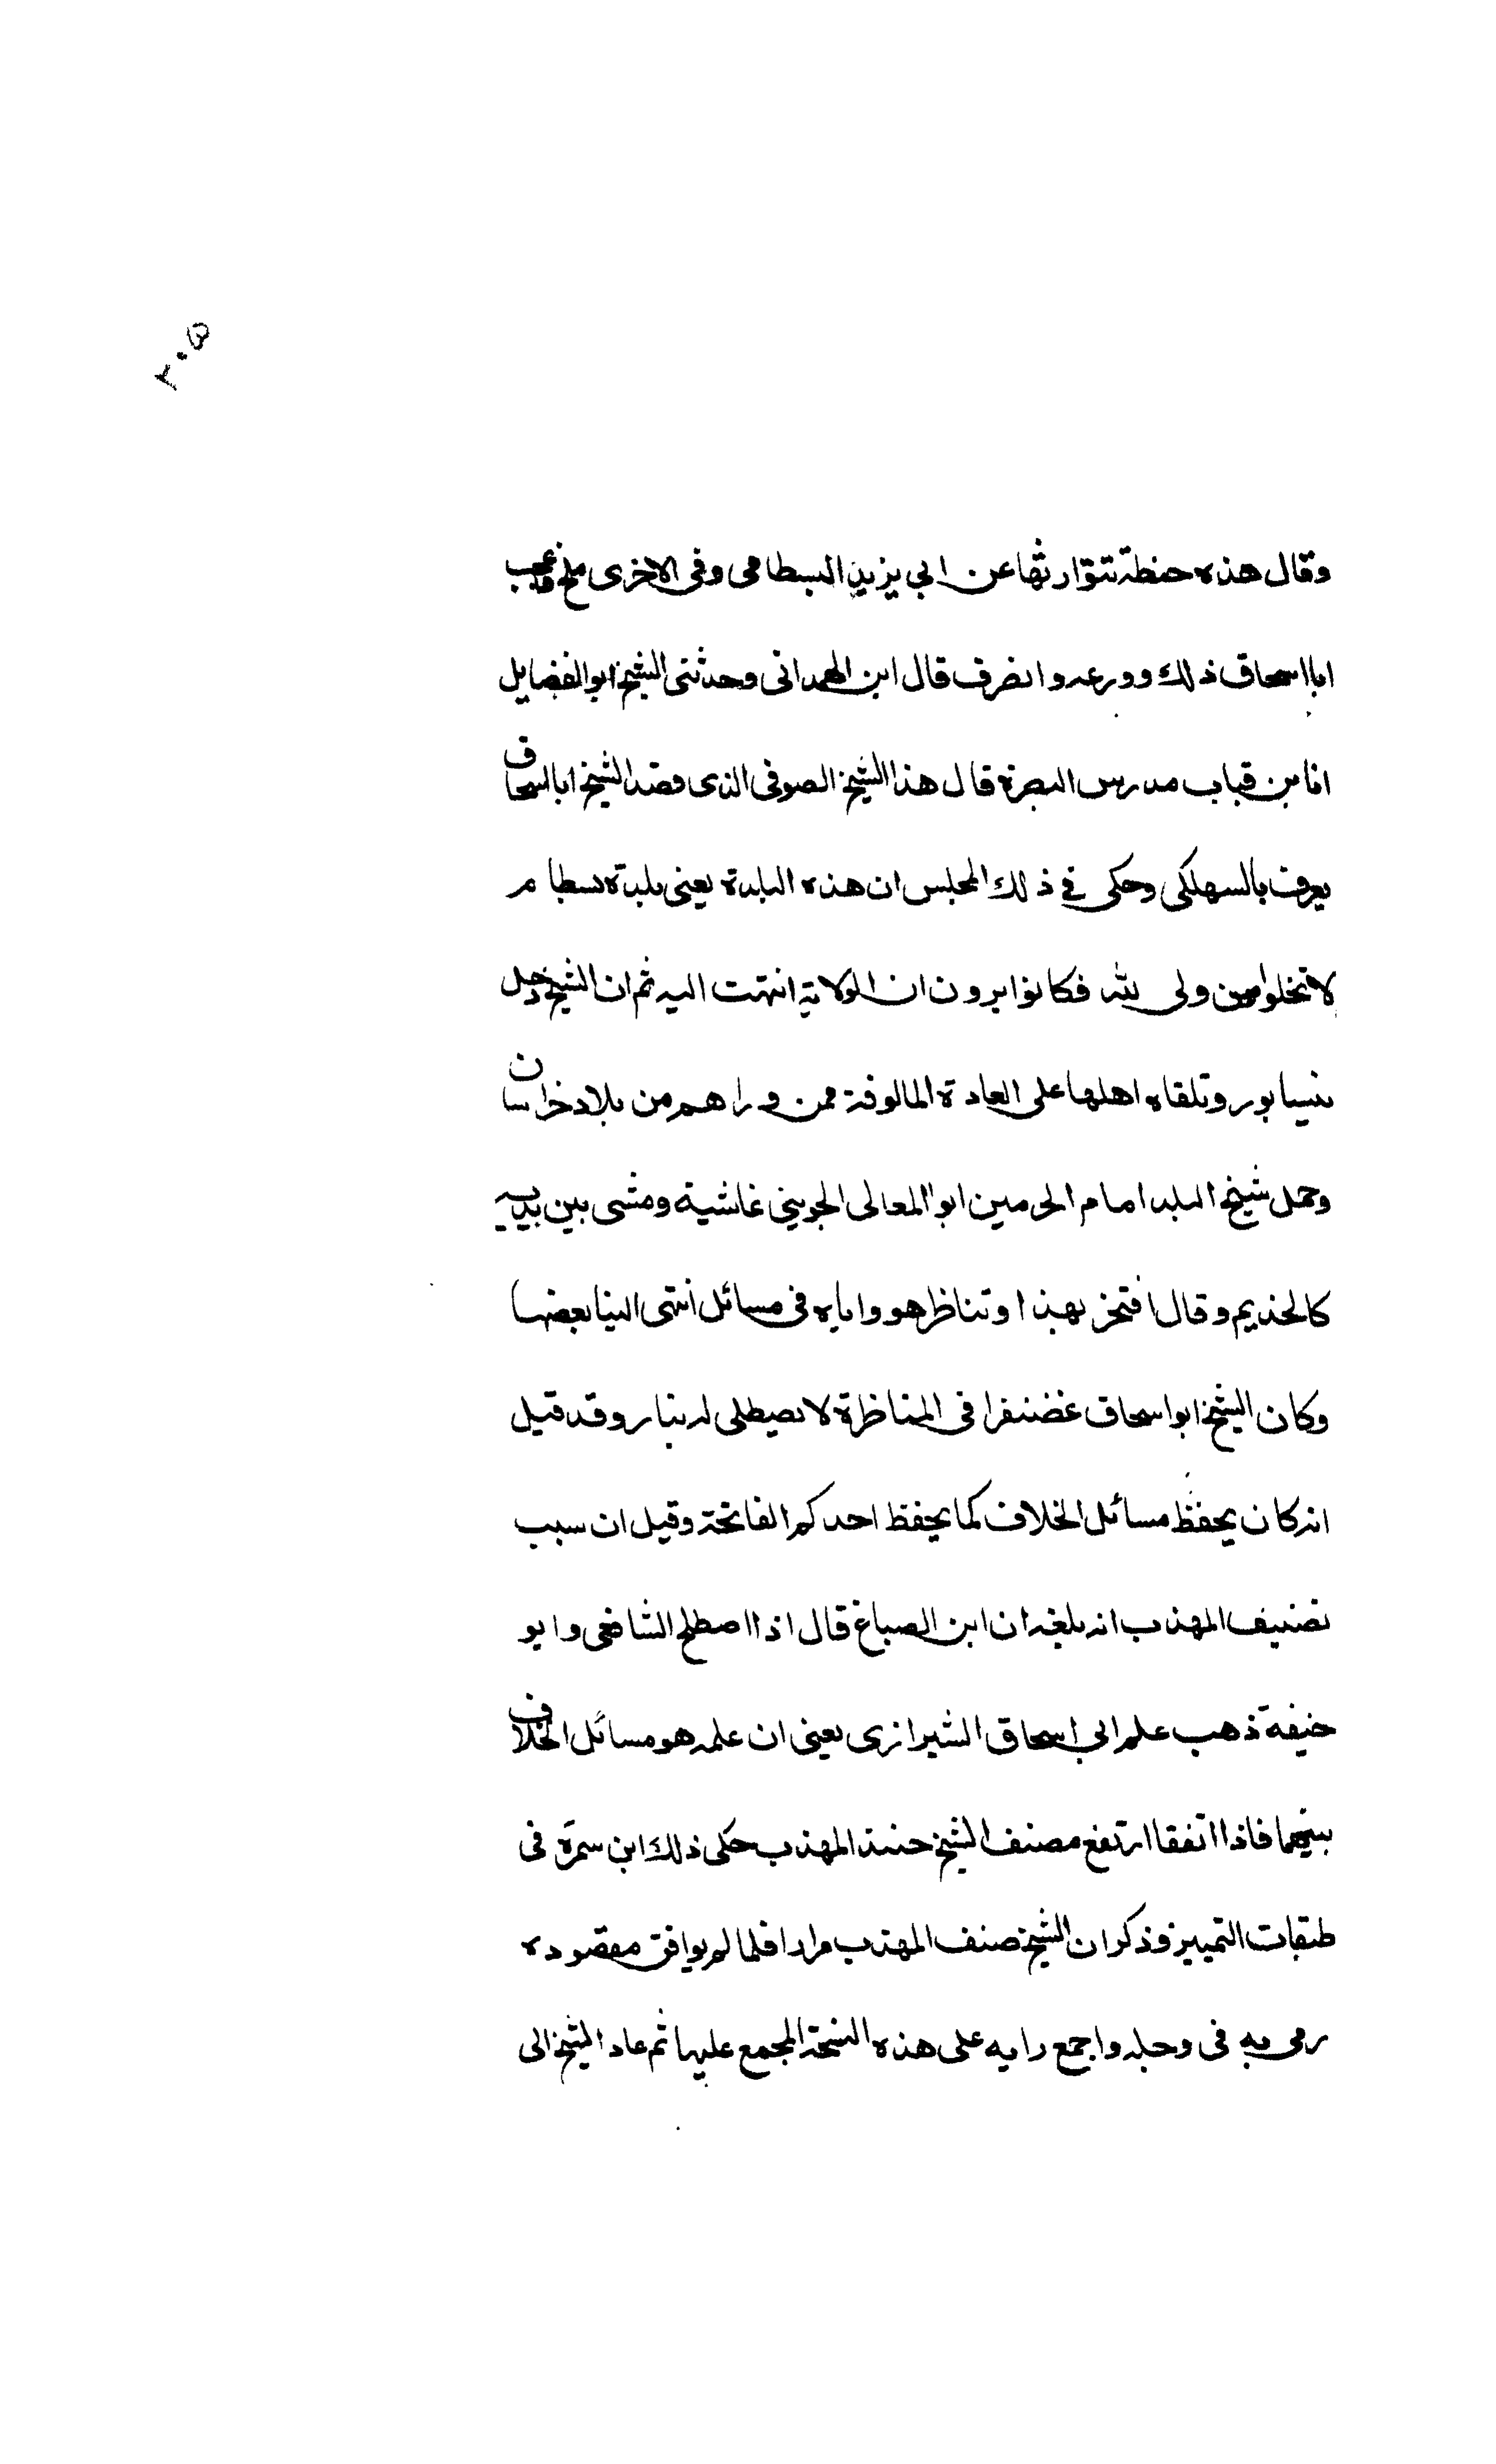 ٢٠٥
وقال هذه حنطة نتوارثها عن ابي يزيد البسطامى وفى الاخرى ملح فاعجب
ابا اسحاق ذلك وودعه وانصرف قال ابن الهمدانى وحدثنى الشيخ ابوالفضايل
انا بن قباب مدرس البصرة قال هذا الشيخ الصوفى الذى قصد الشيخ ابا اسحاق
يعرف بالسهلكى وحكى في ذلك المجلس ان هذه البلدة يعنى بلدة بسطام
لا تخلوا من ولى لله فكانوا يرون ان الولاية انتهت اليه ثم ان الشيخ دخل
نيسابور وتلقاه اهلها على العادة المالوفة ممن وراهم من بلاد خراسان
وحمل شيخ البلد امام الحرمين ابو المعالى الجويني غاشية ومشى بين يديه
كالخديم وقال افتخر بهذا وتناظر هو واياه فى مسائل انتهى الينا بعضها
وكان الشيخ ابو اسحاق غضنفرا فى المناظرة لا يصطلى له بنار وقد قيل
انه كان يحفظ مسائل الخلاف كما يحفظ احدكم الفاتحة وقيل ان سبب
تصنيف المهذب انه بلغه ان ابن الصباغ قال اذا اصطلح الشافعى وابو
حنيفة ذهب علم ابي اسحاق الشيرازى يعنى ان علمه هو مسائل الخلاف
بينهما فاذا اتفقا ارتفع مصنف الشيخ حننة المهذب حكى ذلك ابن سمرة فى
طبقات التمييز وذكر ان الشيخ صنف المهذب مرارا فلما لم يوافق مقصوده
رمى به فى دجله واجمع رايه على هذه النسخة المجمع عليها ثم عاد الشيخ الى